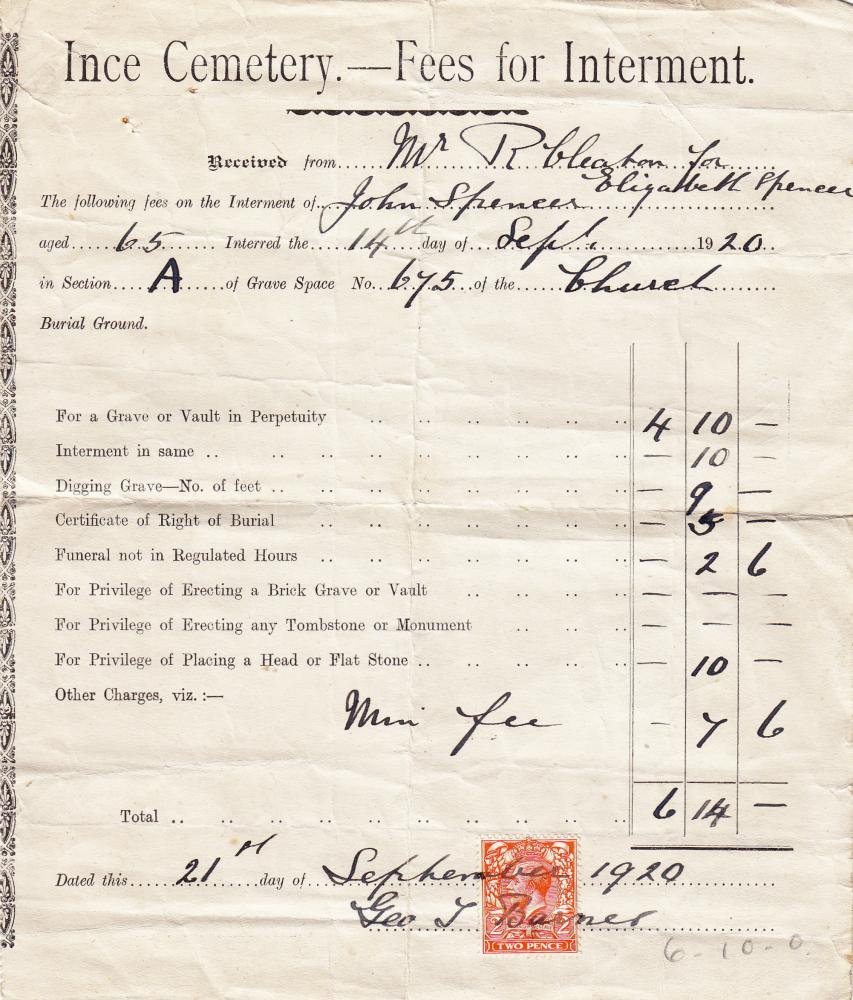 Ince Cemetery.—Fees for Interment.
Received from Mr R Cleaton for
Elizabeth Spencer
The following fees on the Interment of John Spencer
aged 65 Interred the 14th day of Sept. 1920
in Section A of Grave Space No. 675 of the Church
Burial Ground.
For a Grave or Vault in Perpetuity .. .. .. .. .. .. 4 10 —
Interment in same .. .. .. .. .. .. .. .. — 10 —
Digging Grave—No. of feet .. .. .. .. .. .. .. — 9 —
Certificate of Right of Burial .. .. .. .. .. .. — 5 —
Funeral not in Regulated Hours .. .. .. .. .. .. — 2 6
For Privilege of Erecting a Brick Grave or Vault .. .. .. .. — — —
For Privilege of Erecting any Tombstone or Monument .. .. .. — — —
For Privilege of Placing a Head or Flat Stone .. .. .. .. .. — 10 —
Other Charges, viz. :—
Min fee — 7 6
Total .. .. .. .. .. .. .. .. .. .. 6 14 —
Dated this 21st day of September 1920
Geo T
2 2
TWO PENCE
6-10-0.